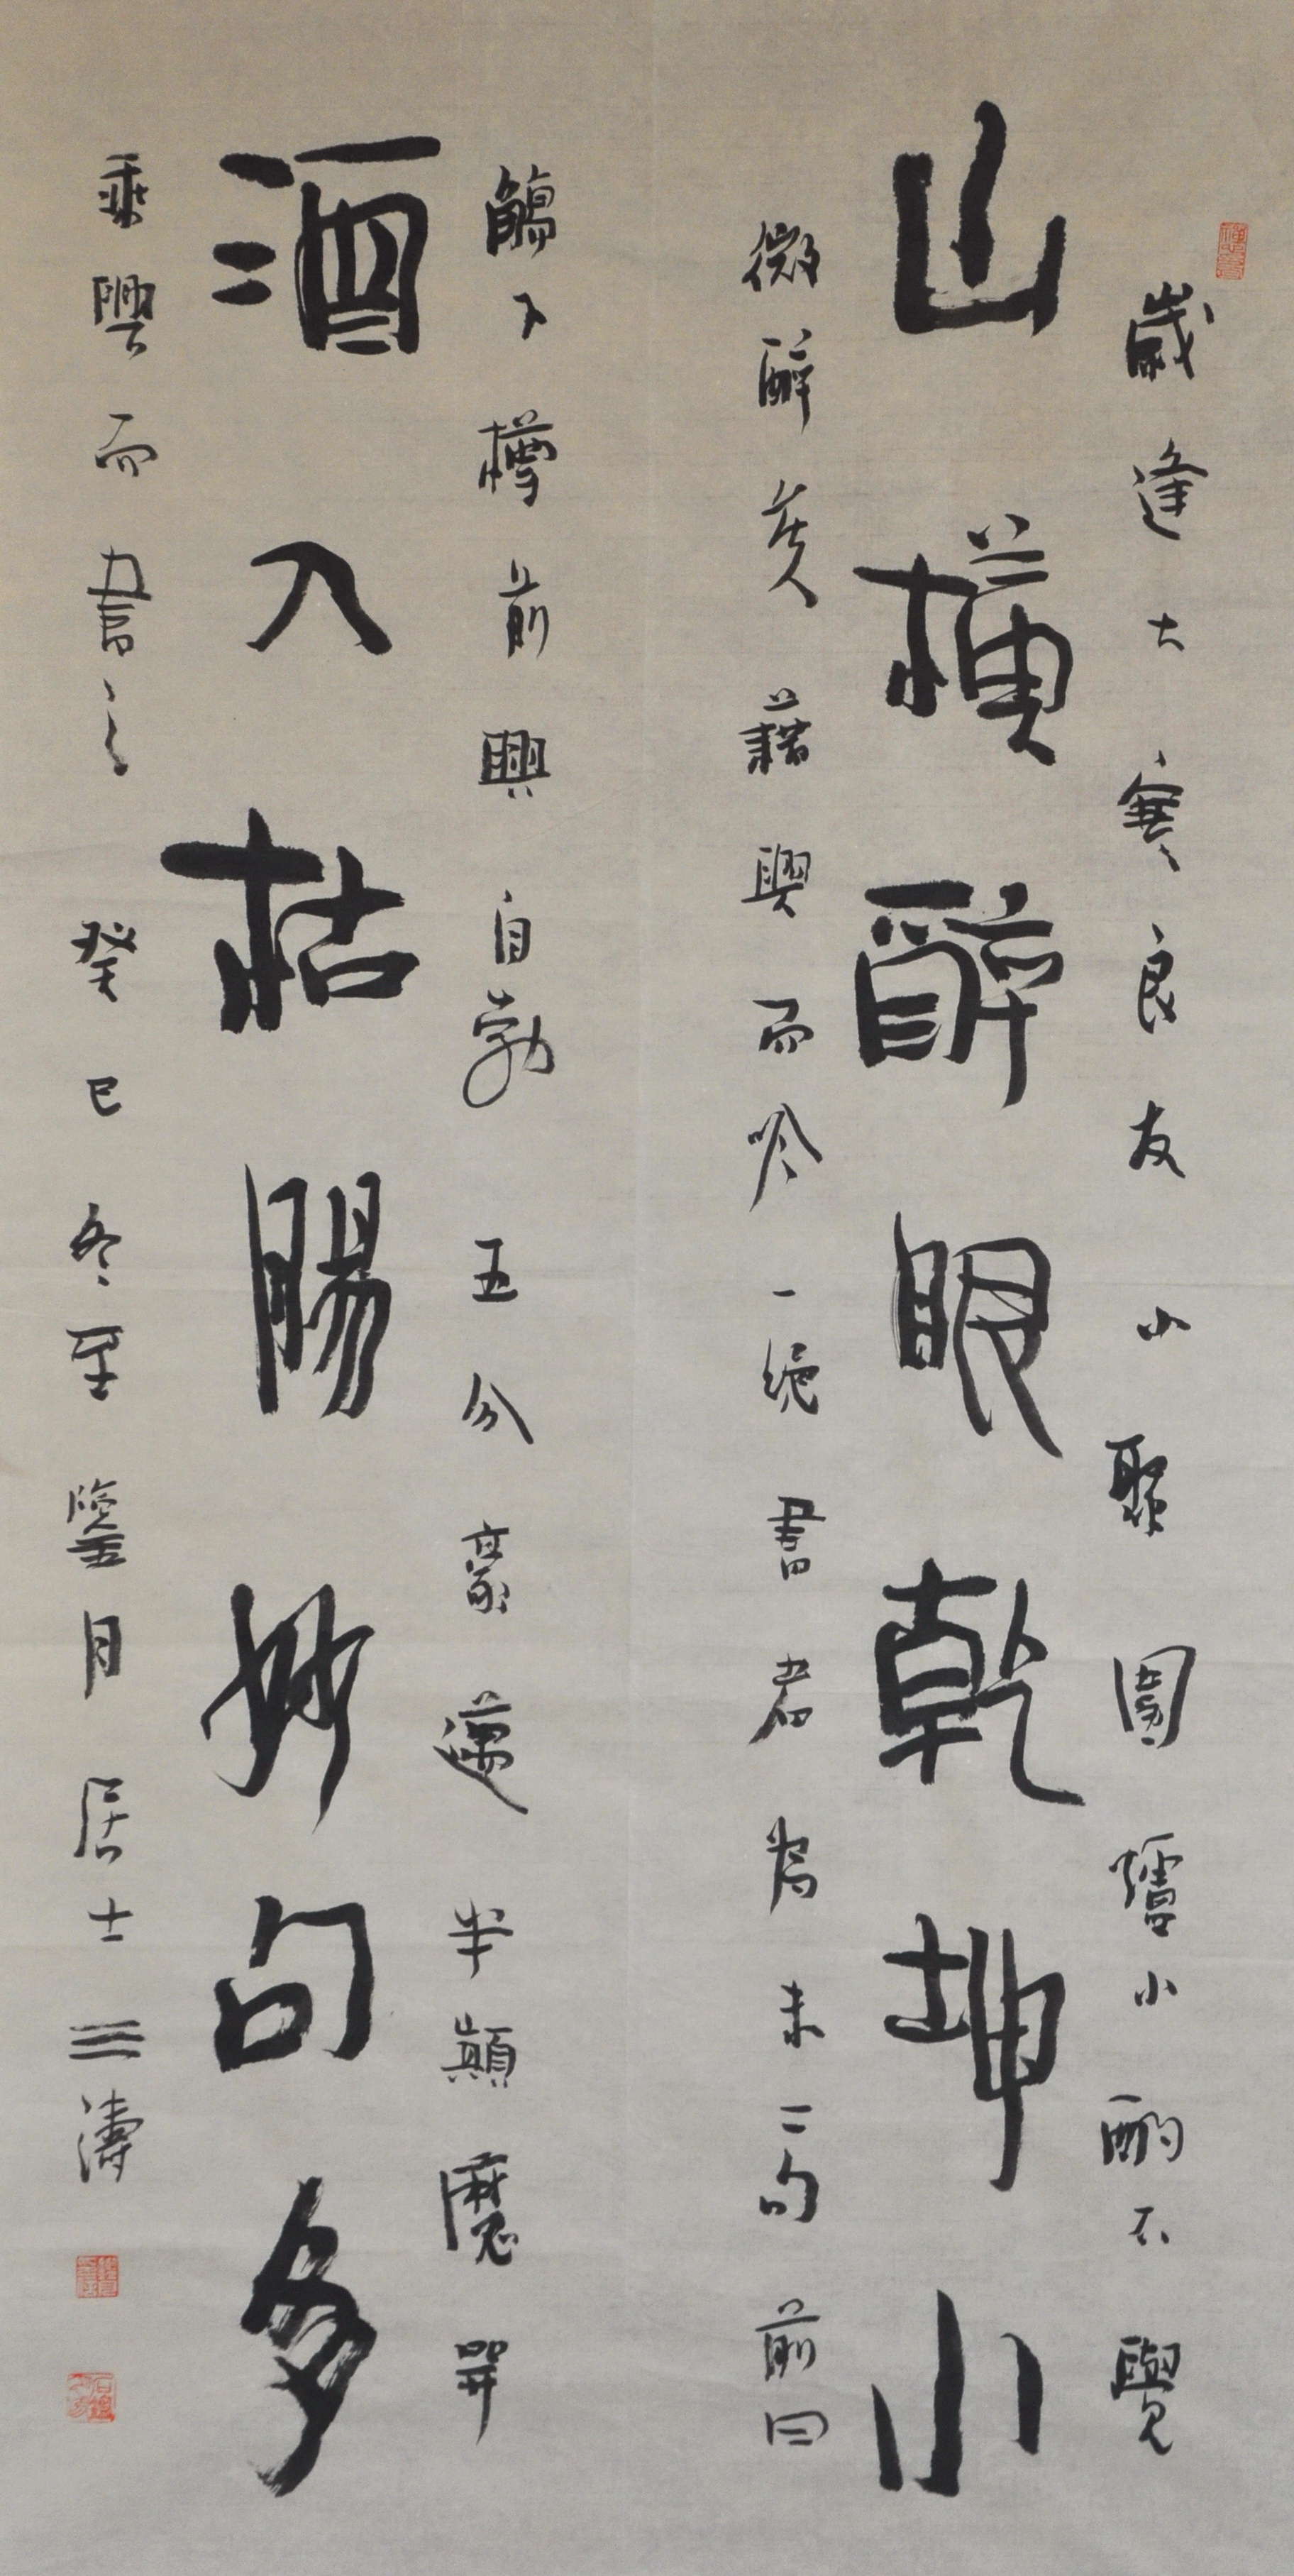 歲逢大寒良友小聚圍爐小酌不覺
山橫醉眼乾坤小
微醉矣藉興而吟一絕書者為末二句前曰
觴下樽前興自勃五分豪邁半顛魔
酒入枯腸妙句多
乘興而書之癸巳冬至鑒月居士三濤